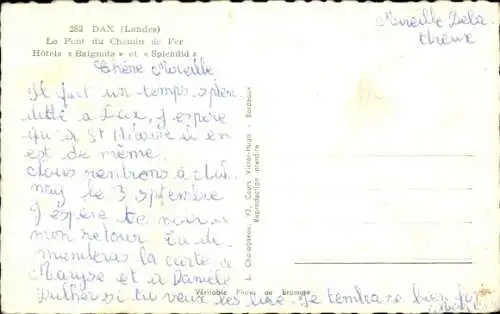 283 DAX (Landes)
Le Pont du Chemin de Fer
Hôtels « Baignots » et « Splendid »
Mireille Dela
thieux
Chère Mireille
Il fait un temps splen
dide à Dax, j espère
qu'à St il en
est de même.
nous rentrons à
nay le 3 septembre
J'espère te voir à
mon retour. Tu di
muniteras la carte à
Maryse et à Danièle
si tu veux les lire. Je t'embrasse bien fort
L. Chatagneau, 93, Cours Victor-Hugo - Bordeaux
Reproduction interdite
Véritable Photo au Bromure